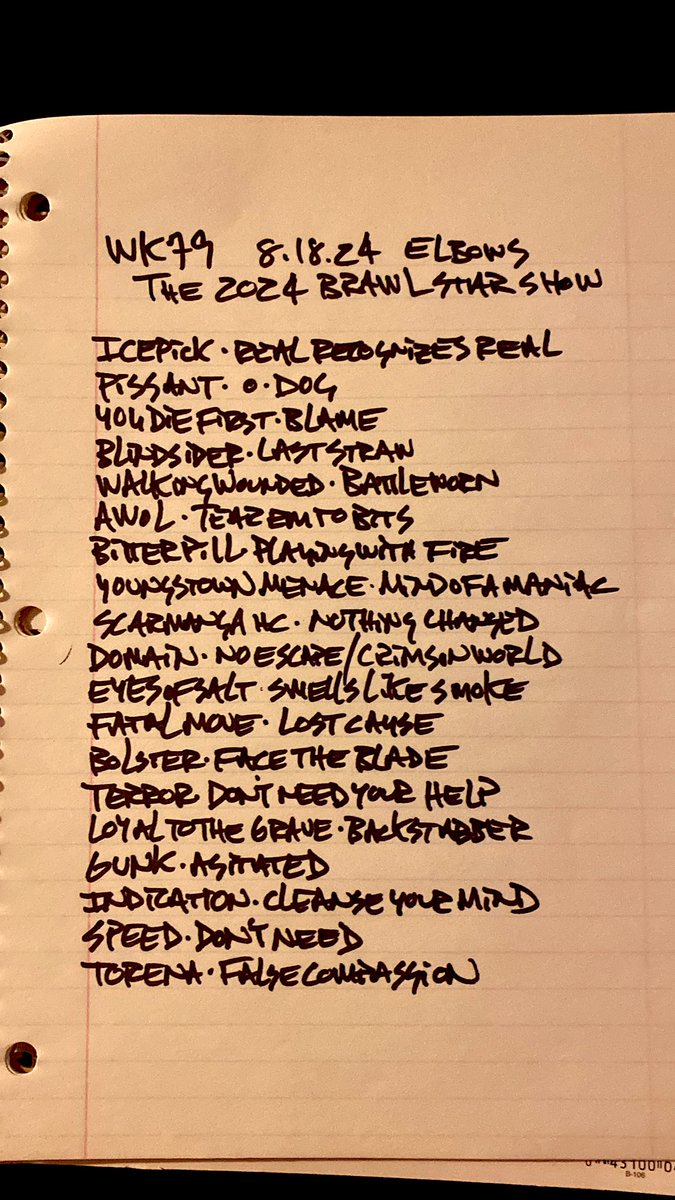 WK79 8.18.24 ELBOWS
THE 2024 BRAWLSTAR SHOW
ICEPICK · REAL RECOGNIZES REAL
PISSANT · DOG
YOU DIE FIRST · BLAME
BLINDSIDER · LAST STRAW
WALKING WOUNDED · BATTLEWORN
AWOL · TEAR EM TO BITS
BITTER PILL PLAYING WITH FIRE
YOUNGSTOWN MENACE · MIND OF A MANIAC
SCARMANGA HC · NOTHING CHANGED
DOMAIN · NO ESCAPE/CRIMSIN WORLD
EYES OF SALT · SMELLS LIKE SMOKE
FATAL MOVE · LOST CAUSE
BOLSTER · FACE THE BLADE
TERROR · DON'T NEED YOUR HELP
LOYAL TO THE GRAVE · BACKSTABBER
GUNK · AGITATED
INDICATION · CLEANSE YOUR MIND
SPEED · DON'T NEED
TORENA · FALSE COMPASSION
B-106